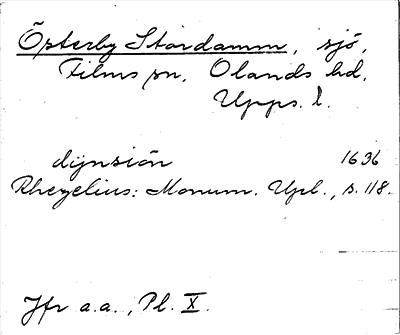 Österby Stordamm, sjö,
Films sn, Olands hd,
Upps. l.
dynsiön 1636
Rhezelius: Monum. Upl., s. 118.
Jfr a.a., Pl. X.